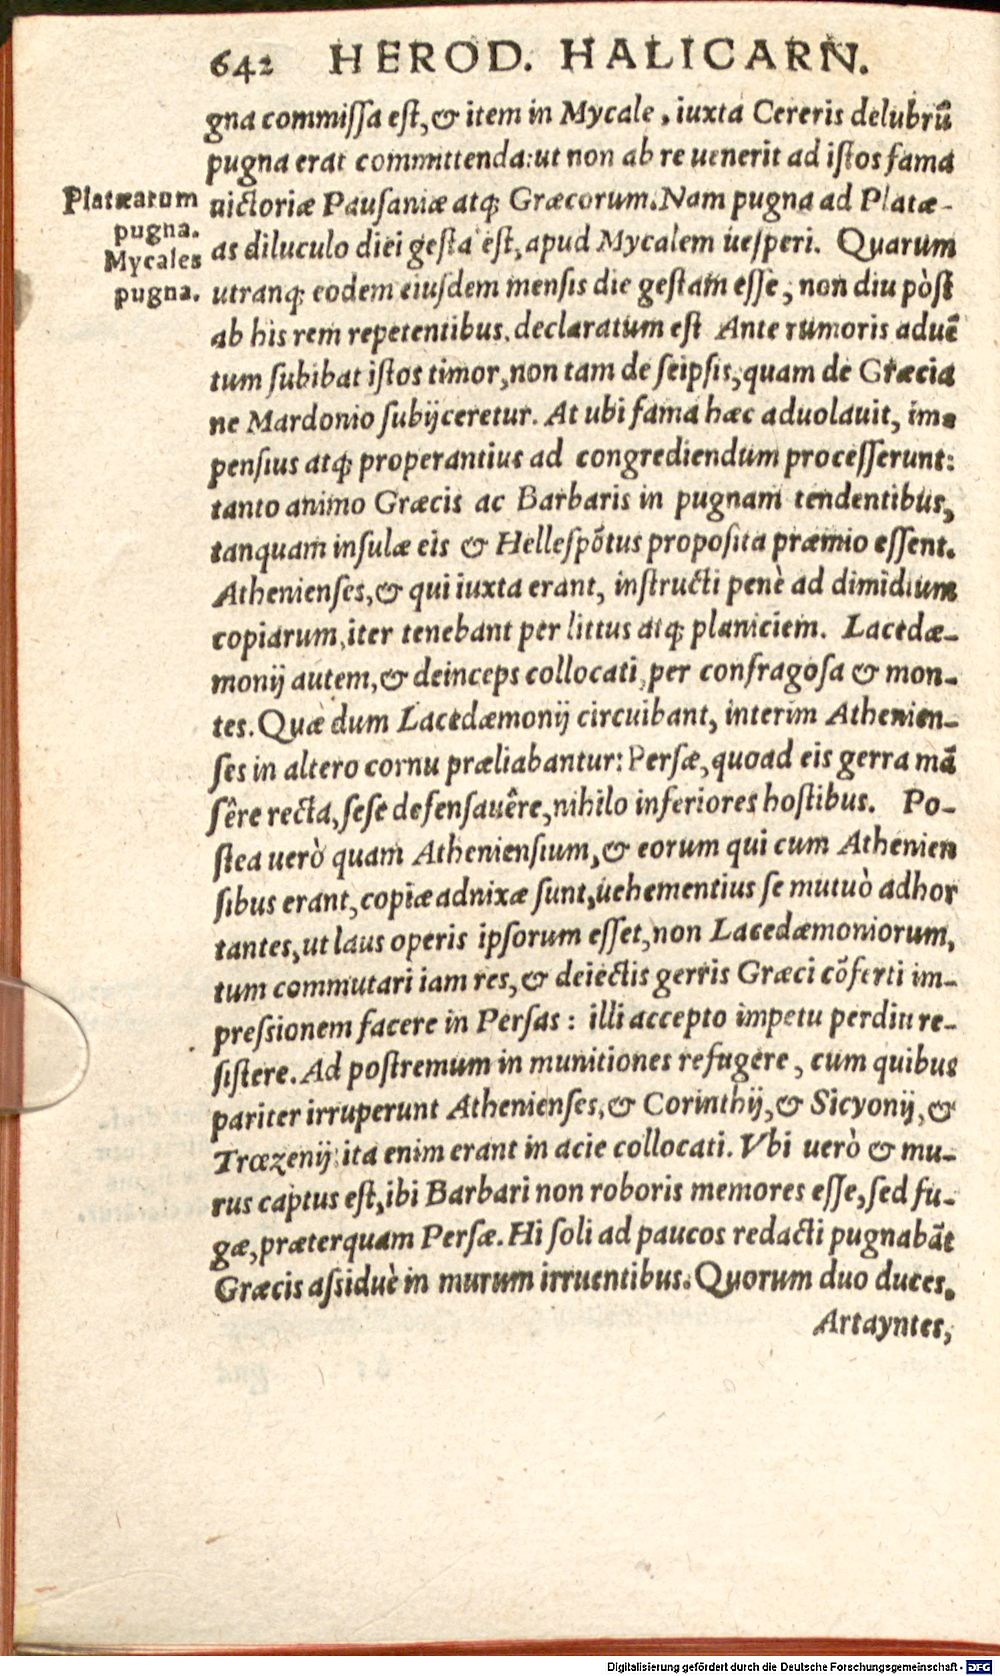 642 HEROD. HALICARN.
gna commiſſa eſt, & item in Mycale, iuxta Cereris delubrũ
pugna erat committenda: ut non ab re uenerit ad iſtos fama
Platæarum
pugna.
Mycales
pugna.
uictoriæ Pauſaniæ atq; Græcorum. Nam pugna ad Platæ-
as diluculo diei geſta eſt, apud Mycalem ueſperi. Quarum
utranq; eodem eiuſdem menſis die geſtam eſſe, non diu pòſt
ab his rem repetentibus, declaratum eſt Ante rumoris aduẽ
tum ſubibat iſtos timor, non tam de ſeipſis, quam de Græcia
ne Mardonio ſubijceretur. At ubi fama hæc aduolauit, im-
penſius atq; properantius ad congrediendum proceſſerunt:
tanto animo Græcis ac Barbaris in pugnam tendentibus,
tanquam inſulæ eis & Helleſpõtus propoſita præmio eſſent.
Athenienſes, & qui iuxta erant, inſtructi penè ad dimidium
copiarum, iter tenebant per littus atq; planiciem. Lacedæ-
monij autem, & deinceps collocati, per confragoſa & mon-
tes. Quæ dum Lacedæmonij circuibant, interim Athenien-
ſes in altero cornu præliabantur: Perſæ, quoad eis gerra mã
ſêre recta, ſeſe defenſauêre, nihilo inferiores hoſtibus. Po-
ſtea uerò quam Athenienſium, & eorum qui cum Athenien
ſibus erant, copiæ adnixæ ſunt, uehementius ſe mutuò adhor
tantes, ut laus operis ipſorum eſſet, non Lacedæmoniorum,
tum commutari iam res, & deiectis gerris Græci cõferti im-
preſsionem facere in Perſas: illi accepto impetu perdiu re-
ſiſtere. Ad poſtremum in munitiones refugêre, cum quibus
pariter irruperunt Athenienſes, & Corinthij, & Sicyonij, &
Trœzenij: ita enim erant in acie collocati. Vbi uerò & mu-
rus captus eſt, ibi Barbari non roboris memores eſſe, ſed fu-
gæ, præterquam Perſæ. Hi ſoli ad paucos redacti pugnabãt
Græcis aſsiduè in murum irruentibus. Quorum duo duces,
Artayntes,
Digitalisierung gefördert durch die Deutsche Forschungsgemeinschaft - DFG